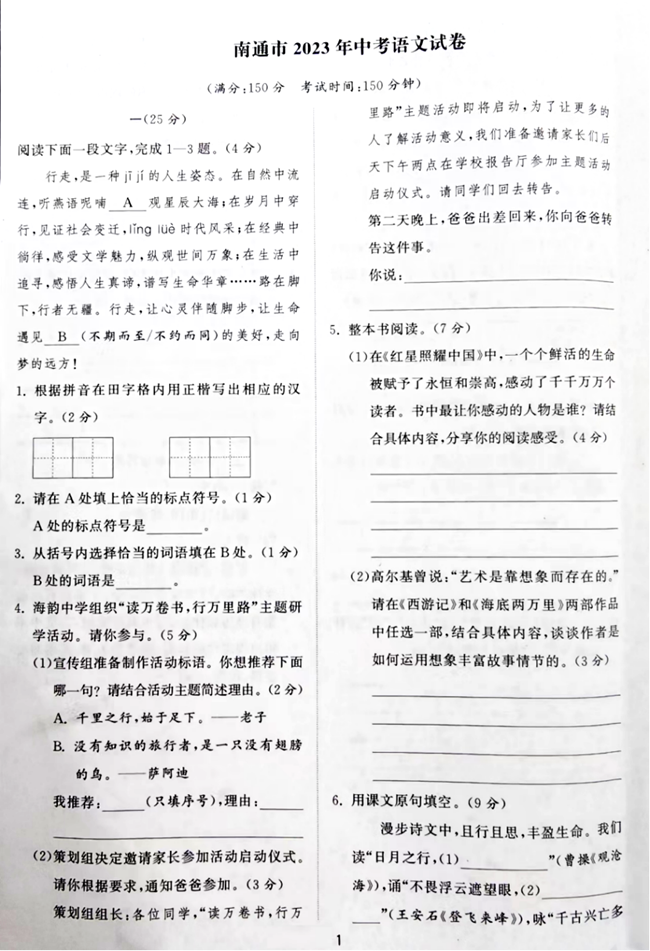 南通市 2023 年中考语文试卷
(满分:150分 考试时间:150分钟)
一(25 分)
阅读下面一段文字,完成1—3题。(4分)
行走,是一种 jī jí 的人生姿态。在自然中流
连,听燕语呢喃 A 观星辰大海;在岁月中穿
行,见证社会变迁,lǐng lüè 时代风采;在经典中
徜徉,感受文学魅力,纵观世间万象;在生活中
追寻,感悟人生真谛,谱写生命华章……路在脚
下,行者无疆。行走,让心灵伴随脚步,让生命
遇见 B (不期而至/不约而同)的美好,走向
梦的远方!
1. 根据拼音在田字格内用正楷写出相应的汉
字。(2分)
2. 请在 A 处填上恰当的标点符号。(1分)
A 处的标点符号是______。
3. 从括号内选择恰当的词语填在 B 处。(1分)
B 处的词语是______。
4. 海韵中学组织“读万卷书,行万里路”主题研
学活动。请你参与。(5分)
(1)宣传组准备制作活动标语。你想推荐下面
哪一句? 请结合活动主题简述理由。(2分)
A. 千里之行,始于足下。——老子
B. 没有知识的旅行者,是一只没有翅膀
的鸟。——萨阿迪
我推荐:____(只填序号),理由:______
(2)策划组决定邀请家长参加活动启动仪式。
请你根据要求,通知爸爸参加。(3分)
策划组组长:各位同学,“读万卷书,行万
里路”主题活动即将启动,为了让更多的
人了解活动意义,我们准备邀请家长们后
天下午两点在学校报告厅参加主题活动
启动仪式。请同学们回去转告。
第二天晚上,爸爸出差回来,你向爸爸转
告这件事。
你说:______
5. 整本书阅读。(7分)
(1)在《红星照耀中国》中,一个个鲜活的生命
被赋予了永恒和崇高,感动了千千万万个
读者。书中最让你感动的人物是谁? 请结
合具体内容,分享你的阅读感受。(4分)
(2)高尔基曾说:“艺术是靠想象而存在的。”
请在《西游记》和《海底两万里》两部作品
中任选一部,结合具体内容,谈谈作者是
如何运用想象丰富故事情节的。(3分)
6. 用课文原句填空。(9分)
漫步诗文中,且行且思,丰盈生命。我们
读“日月之行,(1)______”(曹操《观沧
海》),诵“不畏浮云遮望眼,(2)______
____”(王安石《登飞来峰》),咏“千古兴亡多
1